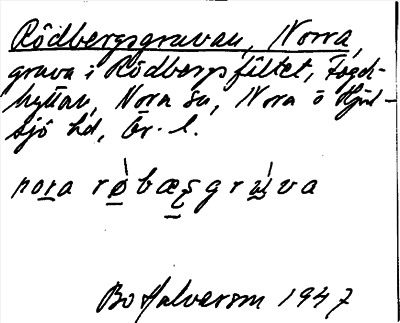 Rödbergsgruvan, Norra,
gruva i Rödbergsfältet, Fogd-
hyttan, Nora sn, Nora o Hjul-
sjö hd, Ör. l.
nora rø̀bæʂgrʉ̀va
Bo Halvarson 1947